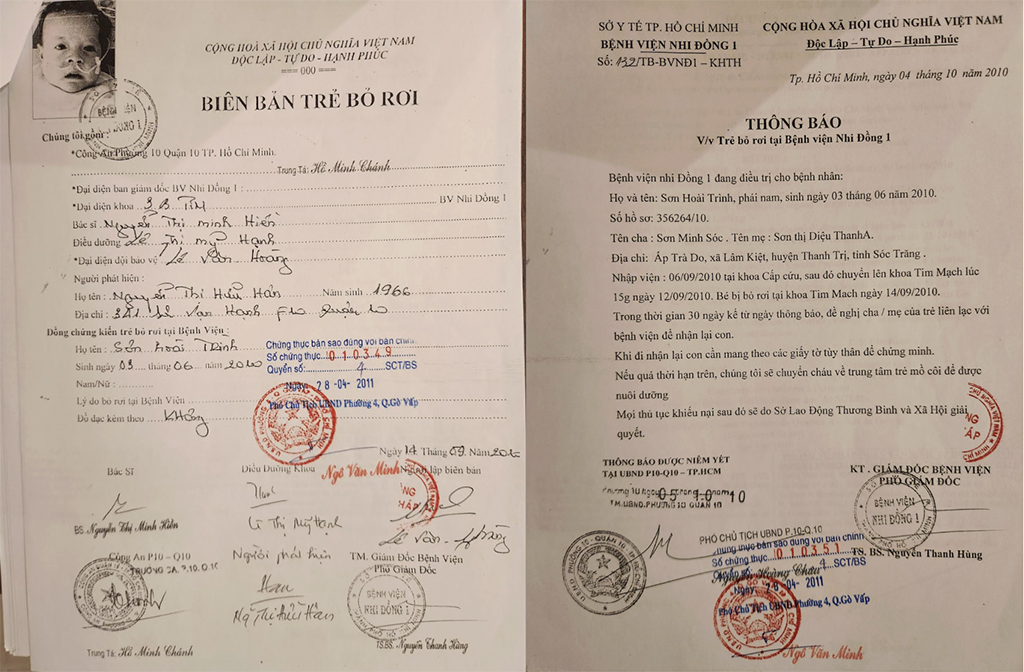 CỘNG HOÀ XÃ HỘI CHỦ NGHĨA VIỆT NAM
ĐỘC LẬP - TỰ DO - HẠNH PHÚC
=== 000 ===
BIÊN BẢN TRẺ BỎ RƠI
Chúng tôi gồm:
*Công An Phường 10 Quận 10 TP. Hồ Chí Minh.
Trung Tá: Hồ Minh Chánh
*Đại diện ban giám đốc BV Nhi Đồng 1 :
*Đại diện khoa BV Nhi Đồng 1
Bác sĩ Nguyễn Thị Minh Hiền
Điều dưỡng Lê Thị Mỹ Hạnh
*Đại diện đội bảo vệ Lê Văn Hoàng
Người phát hiện :
Họ tên : Nguyễn Thị Hữu Hân Năm sinh 1966
Địa chỉ : Vạn Hạnh Quận 10
Đồng chứng kiến trẻ bỏ rơi tại Bệnh Viện :
Họ tên : Sơn Hoài Trình
Sinh ngày 03 tháng 06 năm 2010
Nam/Nữ :
Lý do bỏ rơi tại Bệnh Viện
Đồ đạc kèm theo Không
Chứng thực bản sao đúng với bản chính
Số chứng thực: 010349
Quyển số: SCT/BS
Ngày: 28-04-2011
Phó Chủ Tịch UBND Phường 4, Q.Gò Vấp
Ngày 14 Tháng 09 Năm 2010
Bác Sĩ
Điều Dưỡng Khoa
Ngô Văn Minh
Người lập biên bản
BS. Nguyễn Thị Minh Hiền
Lê Thị Mỹ Hạnh
Công An P10 - Q10
TRƯỞNG CA. P.10. Q.10
Người phát hiện
TM. Giám Đốc Bệnh Viện
Phó Giám Đốc
BỆNH VIỆN
NHI ĐỒNG 1
Trung Tá: Hồ Minh Chánh
TS.BS. Nguyễn Thanh Hùng
SỞ Y TẾ TP. HỒ CHÍ MINH
BỆNH VIỆN NHI ĐỒNG 1
Số: 132/TB-BVNĐ1 – KHTH
CỘNG HÒA XÃ HỘI CHỦ NGHĨA VIỆT NAM
Độc Lập – Tự Do – Hạnh Phúc
Tp. Hồ Chí Minh, ngày 04 tháng 10 năm 2010
THÔNG BÁO
V/v Trẻ bỏ rơi tại Bệnh viện Nhi Đồng 1
Bệnh viện nhi Đồng 1 đang điều trị cho bệnh nhân:
Họ và tên: Sơn Hoài Trình, phái nam, sinh ngày 03 tháng 06 năm 2010.
Số hồ sơ: 356264/10.
Tên cha : Sơn Minh Sóc . Tên mẹ : Sơn thị Diệu ThanhA.
Địa chỉ: Ấp Trà Do, xã Lâm Kiết, huyện Thanh Trị, tỉnh Sóc Trăng .
Nhập viện : 06/09/2010 tại khoa Cấp cứu, sau đó chuyển lên khoa Tim Mạch lúc
15g ngày 12/09/2010. Bé bị bỏ rơi tại khoa Tim Mach ngày 14/09/2010.
Trong thời gian 30 ngày kể từ ngày thông báo, đề nghị cha / mẹ của trẻ liên lạc với
bệnh viện để nhận lại con.
Khi đi nhận lại con cần mang theo các giấy tờ tùy thân để chứng minh.
Nếu quá thời hạn trên, chúng tôi sẽ chuyển cháu về trung tâm trẻ mồ côi để được
nuôi dưỡng
Mọi thủ tục khiếu nại sau đó sẽ do Sở Lao Động Thương Binh và Xã Hội giải
quyết.
THÔNG BÁO ĐƯỢC NIÊM YẾT
TẠI UBND P10-Q10 – TP.HCM
TM.UBND.PHƯỜNG 10 QUẬN 10
KT . GIÁM ĐỐC BỆNH VIỆN
PHÓ GIÁM ĐỐC
BỆNH VIỆN
NHI ĐỒNG 1
PHÓ CHỦ TỊCH UBND P.10-Q.10
TS. BS. Nguyễn Thanh Hùng
Chứng thực bản sao đúng với bản chính
Số chứng thực: 010351
SCT/BS
Nguyễn Hoàng Châu
Ngày: 28-04-2011
Phó Chủ Tịch UBND Phường 4, Q.Gò Vấp
Ngô Văn Minh